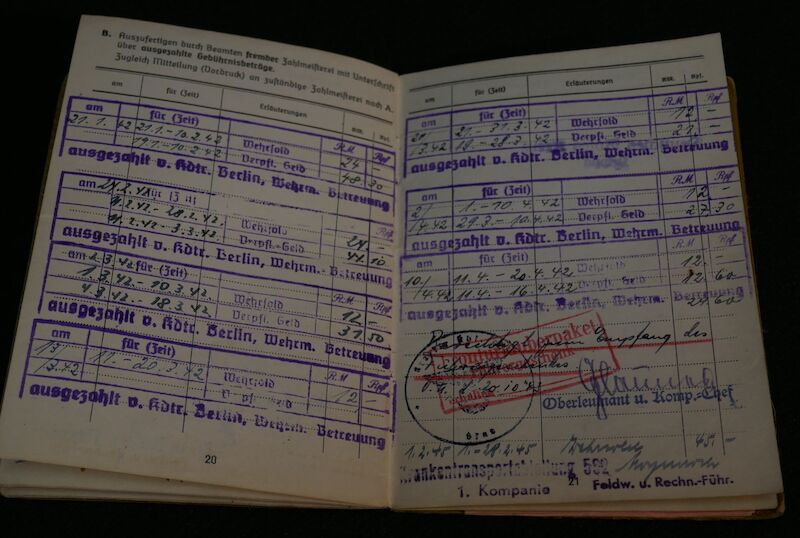 B. Auszufertigen durch Beamten fremder Zahlmeisterei mit Unterschrift
über ausgezahlte Gebührnisbeträge.
Zugleich Mitteilung (Vordruck) an zuständige Zahlmeisterei nach A.
am für (Zeit) Erläuterungen RM. Rpf.
am für (Zeit) RM Rpf
21.1.42 21.1.-10.2.42 Wehrsold 24 -
19.1.-10.2.42 Verpfl. Geld 48.30
ausgezahlt v. Kdtr. Berlin, Wehrm. Betreuung
am für
11.2.42.-28.2.42 Wehrsold 24.-
11.2.42.-3.3.42 Verpfl.-Geld 44.10
ausgezahlt v. Kdtr. Berlin, Wehrm. Betreuung
am 2.3.42 für (Zeit) RM Rpf
1.3.42.-10.3.42. Wehrsold 12.-
4.3.42-18.3.42 Verpfl. Geld 31.50
ausgezahlt v. Kdtr. Berlin, Wehrm. Betreuung
am für (Zeit) RM Rpf
13.
3.42 11.-20.3.42 Wehrsold 12 -
Verpfl. Geld
ausgezahlt v. Kdtr. Berlin, Wehrm. Betreuung
20
am für (Zeit) Erläuterungen RM. Rpf.
am für (Zeit) RM Rpf
21.-31.3.42 Wehrsold 12 -
3.42 19.-28.3.42 Verpfl. Geld 21.-
ausgezahlt v. Kdtr. Berlin, Wehrm. Betreuung
am für (Zeit) RM Rpf
2/ 1.-10.4.42 Wehrsold 12 -
4.42 29.3.-10.4.42 Verpfl. Geld 27.30
ausgezahlt v. Kdtr. Berlin, Wehrm. Betreuung
am für (Zeit) RM Rpf
10./ 11.4.-20.4.42 Wehrsold 12.-
4.42 11.4.-16.4.42 Verpfl. Geld 12.60
ausgezahlt v. Kdtr. Berlin, Wehrm. Betreuung
Empfang des
Oberleutnant u. Komp.-Chef
1.2.45 1.-28.2.45 Wehrsold 45 -
Krankentransportabteilung 592
1. Kompanie 21 Feldw. u. Rechn.-Führ.